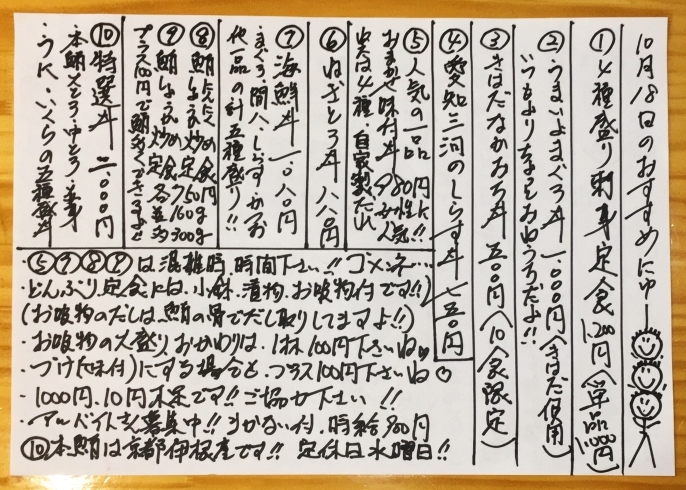 10月18日のおすすめにゅー
① 4種盛り刺身定食 1,200円(単品1,000円)
② うまいよまぐろ丼 一、〇〇〇円(きはだ使用)
いつもよりちょっとおねうちだよ!!
③ きはだなかおち丼 五〇〇円(10食限定)
④ 愛知三河のしらす丼 七五〇円
⑤ 人気の一品
おまかせ味付丼 980円
女性に人気!!
実は4種 自家製だれ
⑥ ねぎとろ丼 八八〇円
⑦ 海鮮丼 一、〇八〇円
まぐろ、間八、しらす、かつお
他一品の計五種盛り!!
⑧ 鮪
⑨ 鮪
プラス100円で
⑩ 特選丼 二、〇〇〇円
本鮪大とろ・中とろ・赤身
・うに・いくらの五種盛丼
⑤⑦⑧⑨は混雑時、時間下さい!! ゴメンネ…
・どんぶり、定食には、小鉢、漬物、お吸物付です!!
(お吸物のだしは、鮪の骨でだし取りしてますよ!!)
・お吸物の大盛り、おかわりは、1杯100円下さいね♡
・づけ(味付)にする場合も、プラス100円下さいね♡
・1000円、10円不足です!! ご協力下さい!!
・アルバイトさん募集中!! まかない付、時給900円
⑩本鮪は京都伊根産です!! 定休日水曜日!!